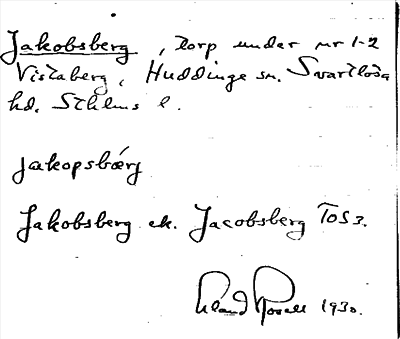 Jakobsberg, torp under nr 1-2
Vistaberg, Huddinge sn. Svartlösa
hd. Sthlms l.
jakopsbærg
Jakobsberg ek. Jacobsberg TOS3.
Erland Rosell 1930.